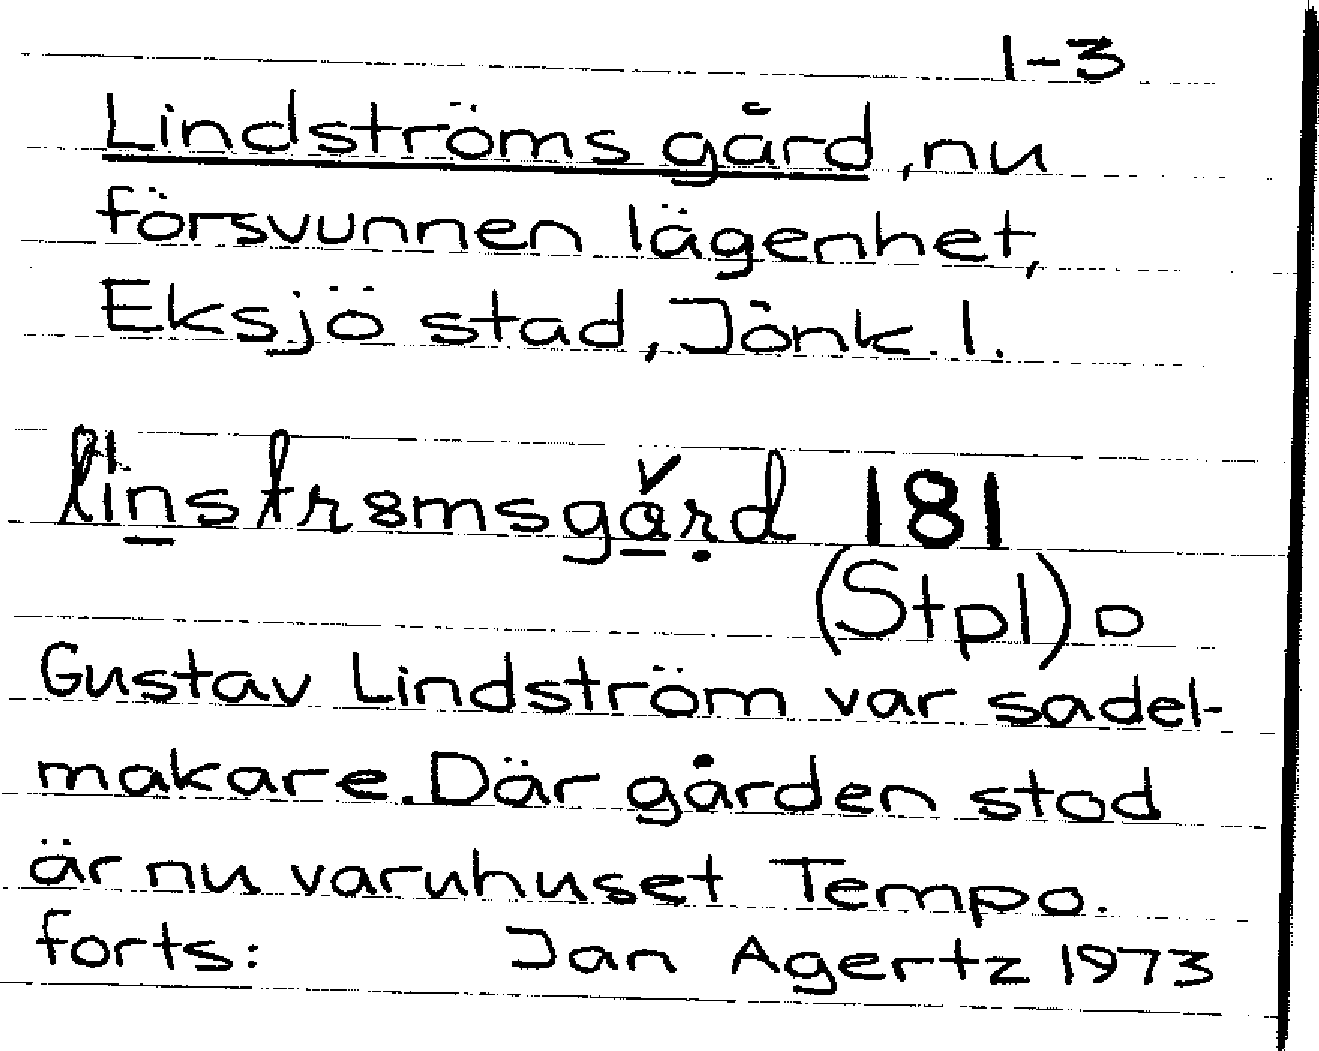 1-3
Lindströms gård, nu
försvunnen lägenhet,
Eksjö stad, Jönk. l.
181
(Stpl) o
Gustav Lindström var sadel-
makare. Där gården stod
är nu varuhuset Tempo.
forts: Jan Agertz 1973